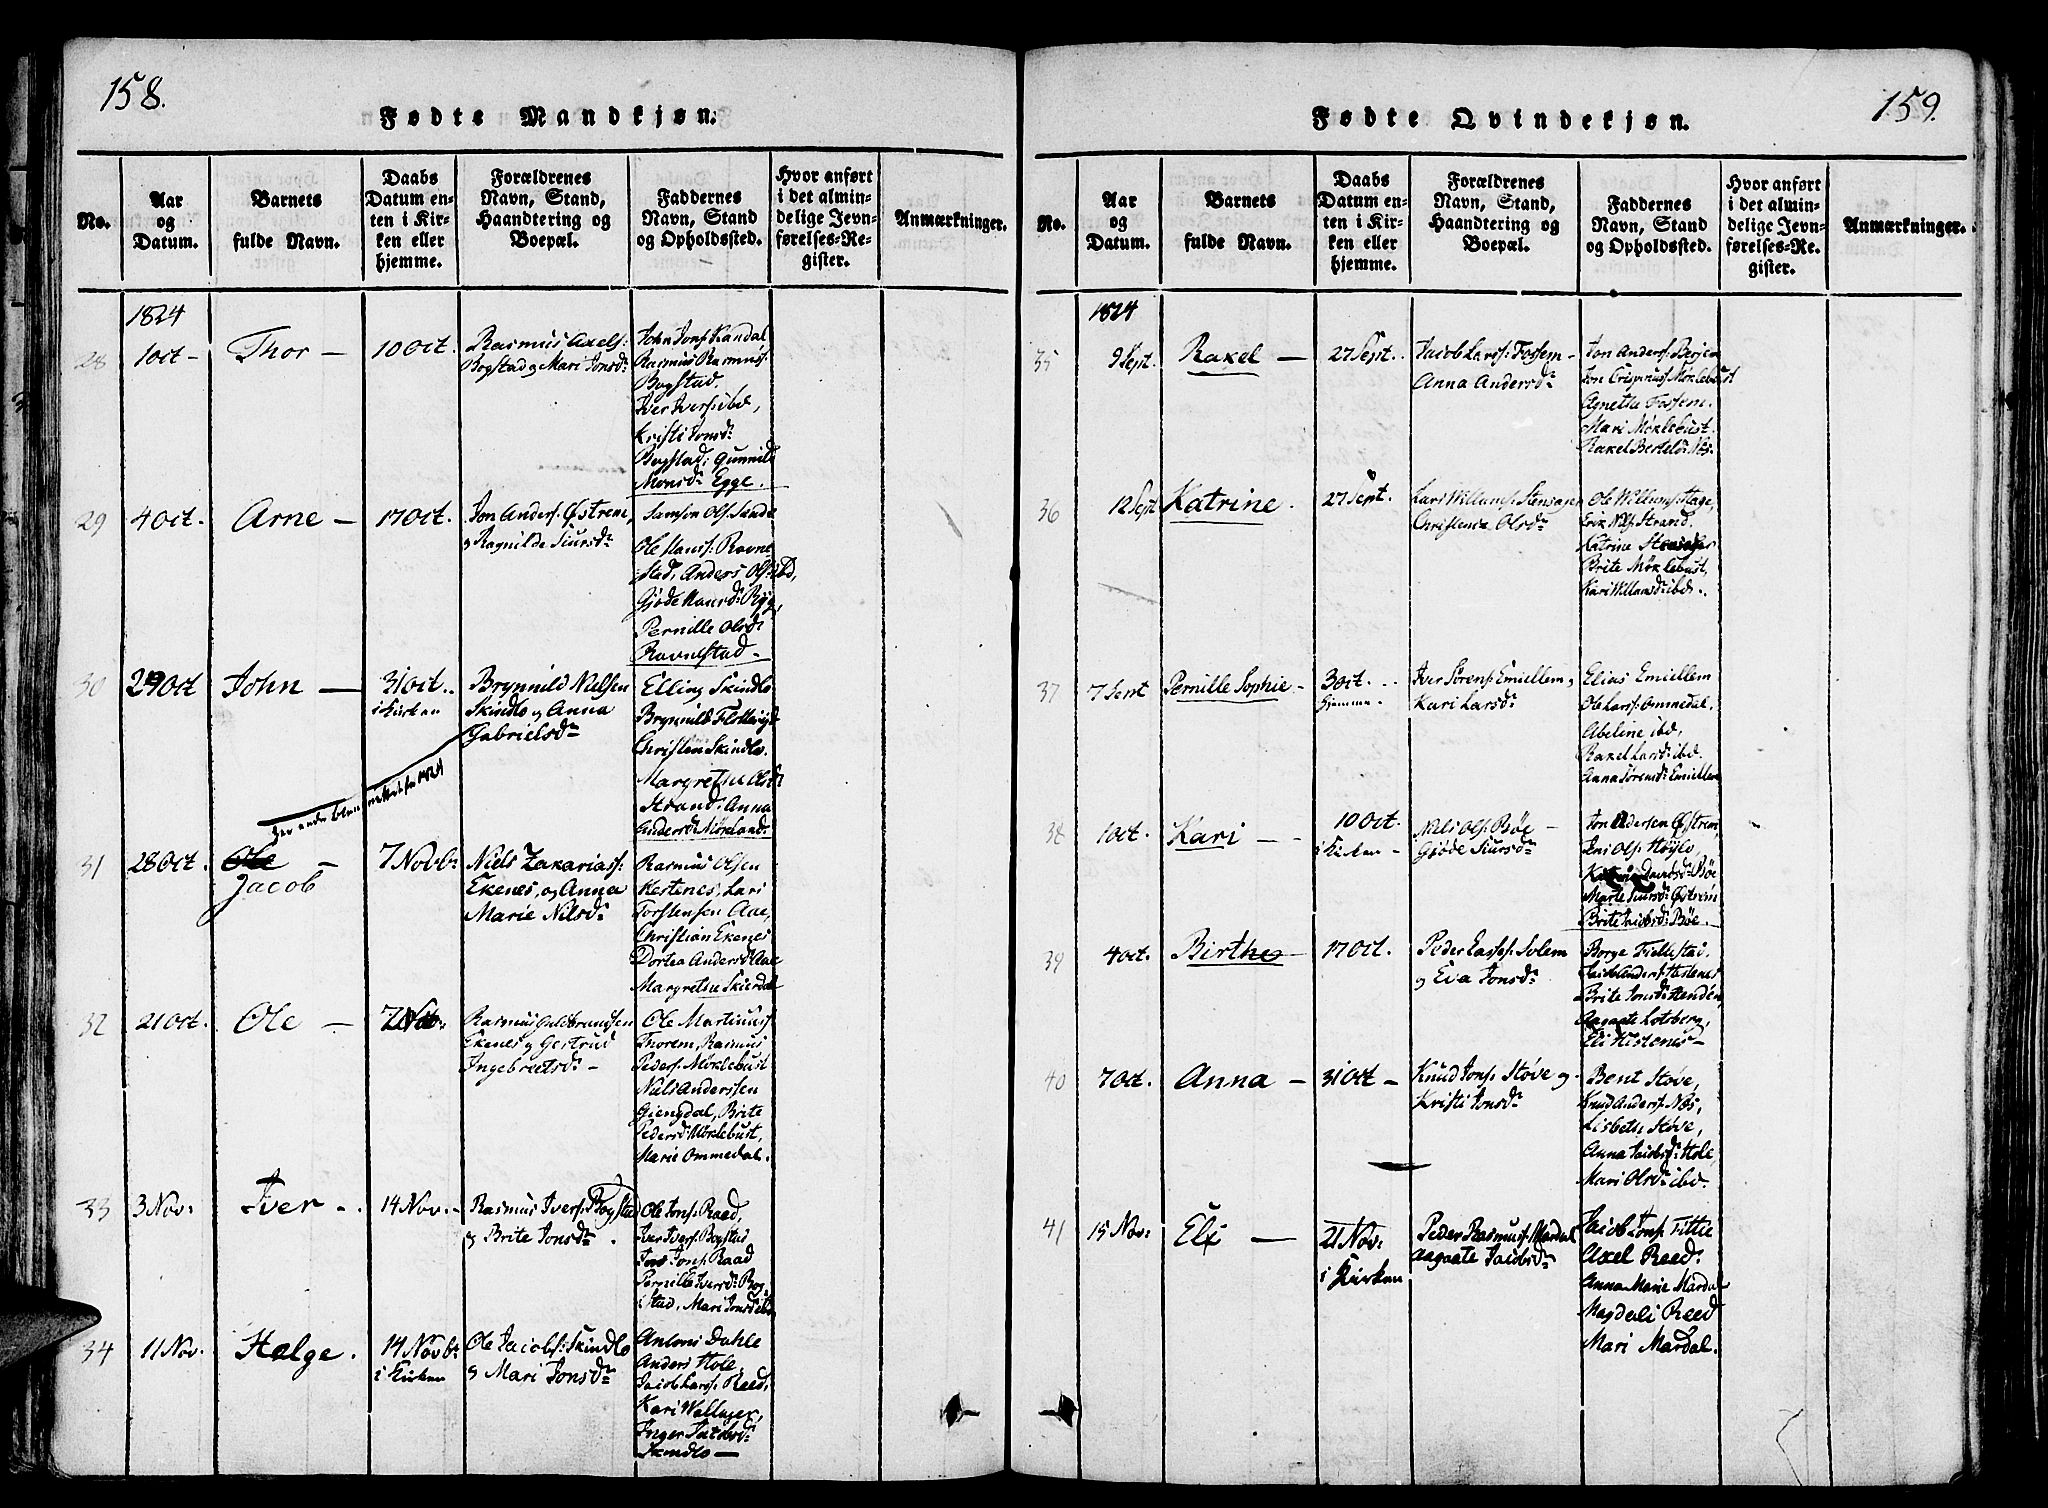 158.
Fødte Mandkjøn.
No.
Aar
og
Datum.
Barnets
fulde Navn.
Daabs
Datum en-
ten i Kir-
ken eller
hjemme.
Forældrenes
Navn, Stand,
Haandtering og
Boepæl.
Faddernes
Navn, Stand
og Opholdssted.
Hvor anført
i det almin-
delige Jevn-
førelses-Re-
gister.
Anmærkninger.
1824
28
1 Oct -
Thor -
10 Oct.
Rasmus Axels:
Bogstad og Mari Jonsd:
John Jons: Kandal
Rasmus Rasmus:
Bogstad.
Iver Ivers: ibd,
Kristi Jonsd:
Bogstad, Gunnild
Monsd: Egge.
29
4 Oct.
Arne -
17 Oct.
Jon Anders: Østrem,
og Ragnilde Siursd:
Samson Ols: Sande
Ole Hanss: Ravne-
stad, Anders Ols: ibd,
Gjøde Hansd: Ryg,
Pernille Olsd:
Ravnestad -
30
29 Oct
John -
31 Oct..
i Kirken
Brynnild Nielsen
Skindlo og Anna
Gabrielsd:
Elling Skindlo
Brynnild Flottevig
Christen Skindlo.
Margrethe Olsd:
Strand. Anna
Andersd: Mørkland:
31
28 Oct.
Ole -
Jacob
7 Novbr
Niels Zakariass:
Ekenes, og Anna
Marie Nilsd:
Rasmus Olsen
Hestenes, Lars
Torstensen Aae,
Christian Ekenes
Dortea Andersd: Aae
Margrethe Skierdal
32
21 Oct.
Ole -
7 Nov:
Rasmus Guldbrandsen
Ekenes og Gertrud
Ingebretsd: -
Ole Martinuss:
Thorem, Rasmus
Peders: Møklebust
Niels Anderssen
Giengdal, Brite
Pedersd: Møklebust,
Marie Ommedal.
33
3 Nov:
Iver -.
14 Nov. -
Rasmus Ivers: Bogstad
og Brite Jonsd: .
Ole Jons: Raad,
Iver Ivers: Bogstad
Jens Jons: Raad
Pernille Iversd: Bog-
stad, Mari Jonsd: ibd
34
11 Nov.
Helge.
14 Novbr
i Kirken
Ole Jacobs: Skindlo
og Mari Jonsd:
Antoni Dahle
Anders Hole,
Jacob Larss: Reed,
Kari Wallager,
Inger Jacobsd:
Skindlo -
159.
Fødte Qvindekjøn.
No.
Aar
og
Datum.
Barnets
fulde Navn.
Daabs
Datum en-
ten i Kir-
ken eller
hjemme.
Forældrenes
Navn, Stand,
Haandtering og
Boepæl.
Faddernes
Navn, Stand
og Opholdssted.
Hvor anført
i det almin-
delige Jevn-
førelses-Re-
gister.
Anmærkninger.
1824
35
9 Sept.
Raxel -
27 Sept..
Jacob Larss: Fossem -
Anna Andersd:
Jon Anderss: Berjem
Jon Crispinuss: Møklebust
Agnethe Fossem.
Mari Møklebust.
Raxel Bertelsd: Næs.
36
12 Sept
Katrine.
27 Sept.
Lars Willums: Stensager
Christense Olsd:
Ole Willums: Hage,
Erik Nils: Strand.
Katrine Stensager
Brite Møklebust,
Kari Willumsd: ibd.
37
7 Sept
Pernille Sophie -
3 Oct...
hjemme.
Iver Sørens: Emiellem og
Kari Larsd:
Elias Emiellem
Ole Larss: Ommedal.
Abeline ibd,
Raxel Larsd: ibd.
Anna Sørensd: Emiellem
38
1 Oct.
Kari -
10 Oct.
i Kirken -
Niels Ols: Bøe -
Gjøde Siursd:
Jon Andersen Østrem,
Jens Ols: Høylo,
Davidsd: Bøe
Marte Siursd: Østrem
Brite Jacobsd: Bøe.
39
4 Oct.
Birthe -
17 Oct.
Peder Lasses: Solem
og Eva Jonsd:
Borge Fiellestad.
Jacob Anders: Hestenes
Brite Jonsd: Henden,
Aagaate Lotsberg,
Eli Hestenes -
40
7 Oct.
Anna -
31 Oct -
Knud Jons: Støve og
Kristi Jonsd:
Bent Støve,
Knud Anders: Næs,
Lisbeth Støve,
Anna Jacobsd: Hole,
Mari Olsd: ibd.
41
15 Nov:
Eli -
21 Nov:
i Kirken
Peder Rasmus: Mardal
Aagaate Jacobsd:
Jacob Jons: Fitte
Axel Reed.
Anna Marie Mardal
Magdeli Reed
Mari Mardal.